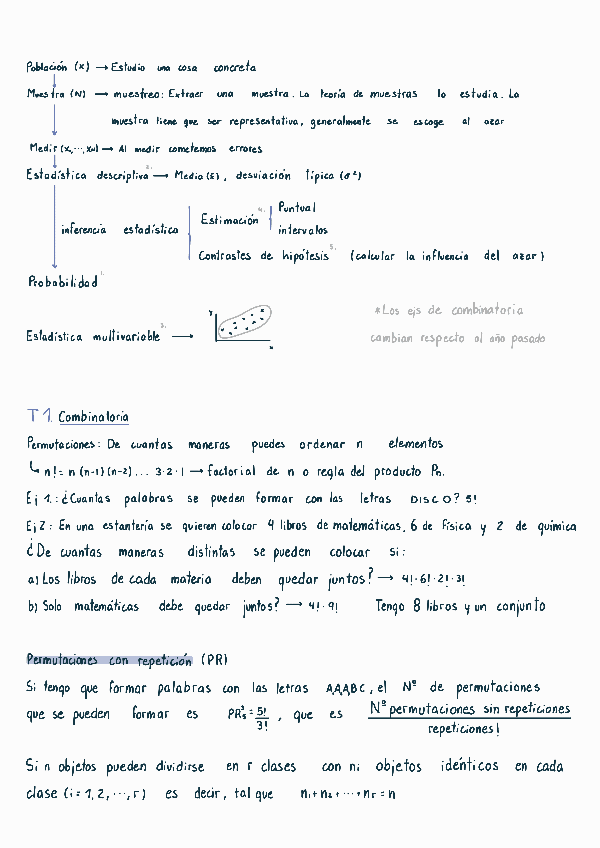 Población (x) → Estudio una cosa concreta
Muestra (N) → muestreo: Extraer una muestra. La teoría de muestras lo estudia. La
muestra tiene que ser representativa, generalmente se escoge al azar
Medir (x,...,xn) → Al medir cometemos errores
Estadística descriptiva 2. → Media (x̄), desviación típica (σ²)
Puntual
Estimación 4.
inferencia estadística
intervalos
Contrastes de hipótesis 5. (calcular la influencia del azar)
Probabilidad 1.
*Los ejs de combinatoria
Y
Estadística multivariable 3. →
cambian respecto al año pasado
x
T1. Combinatoria
Permutaciones: De cuantas maneras puedes ordenar n elementos
↳ n! = n (n-1) (n-2) ... 3·2·1 → factorial de n o regla del producto Pn.
Ej 1.: ¿Cuantas palabras se pueden formar con las letras DISCO? 5!
Ej 2: En una estantería se quieren colocar 4 libros de matemáticas, 6 de física y 2 de química
¿De cuantas maneras distintas se pueden colocar si:
a) Los libros de cada materia deben quedar juntos? → 4!·6!·2!·3!
b) Solo matemáticas debe quedar juntos? → 4!·9! Tengo 8 libros y un conjunto
Permutaciones con repetición (PR)
Si tengo que formar palabras con las letras AAABC, el Nº de permutaciones
que se pueden formar es PR₅³ = 5!/3! , que es Nº permutaciones sin repeticiones / repeticiones!
Si n objetos pueden dividirse en r clases con ni objetos idénticos en cada
clase (i = 1, 2, ..., r) es decir, tal que n₁ + n₂ + ... + nr = n